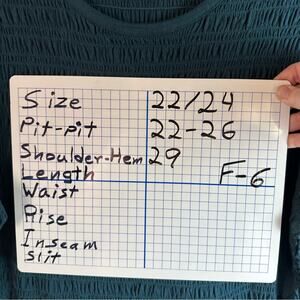 Size 22/24
Pit-pit 22-26
Shoulder-Hem 29
Length F-6
Waist
Rise
Inseam
slit